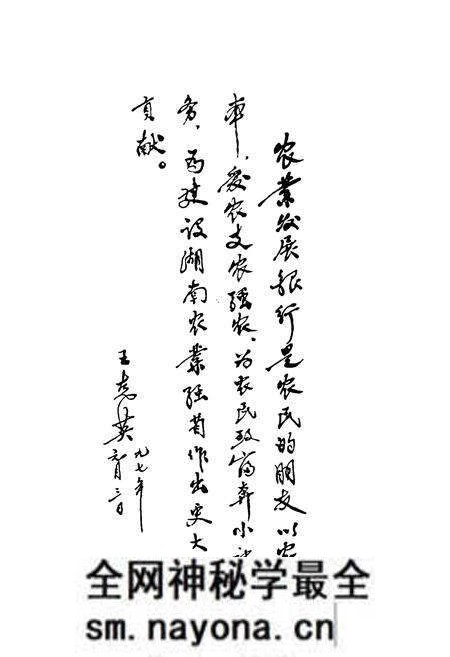 农業发展银行是农民的朋友以农
本，爱农支农强农，为农民致富奔小
务，为建设湖南农業强省作出更大
贡献。
王克英
九七年
元月三日
全网神秘学最全
sm.nayona.cn